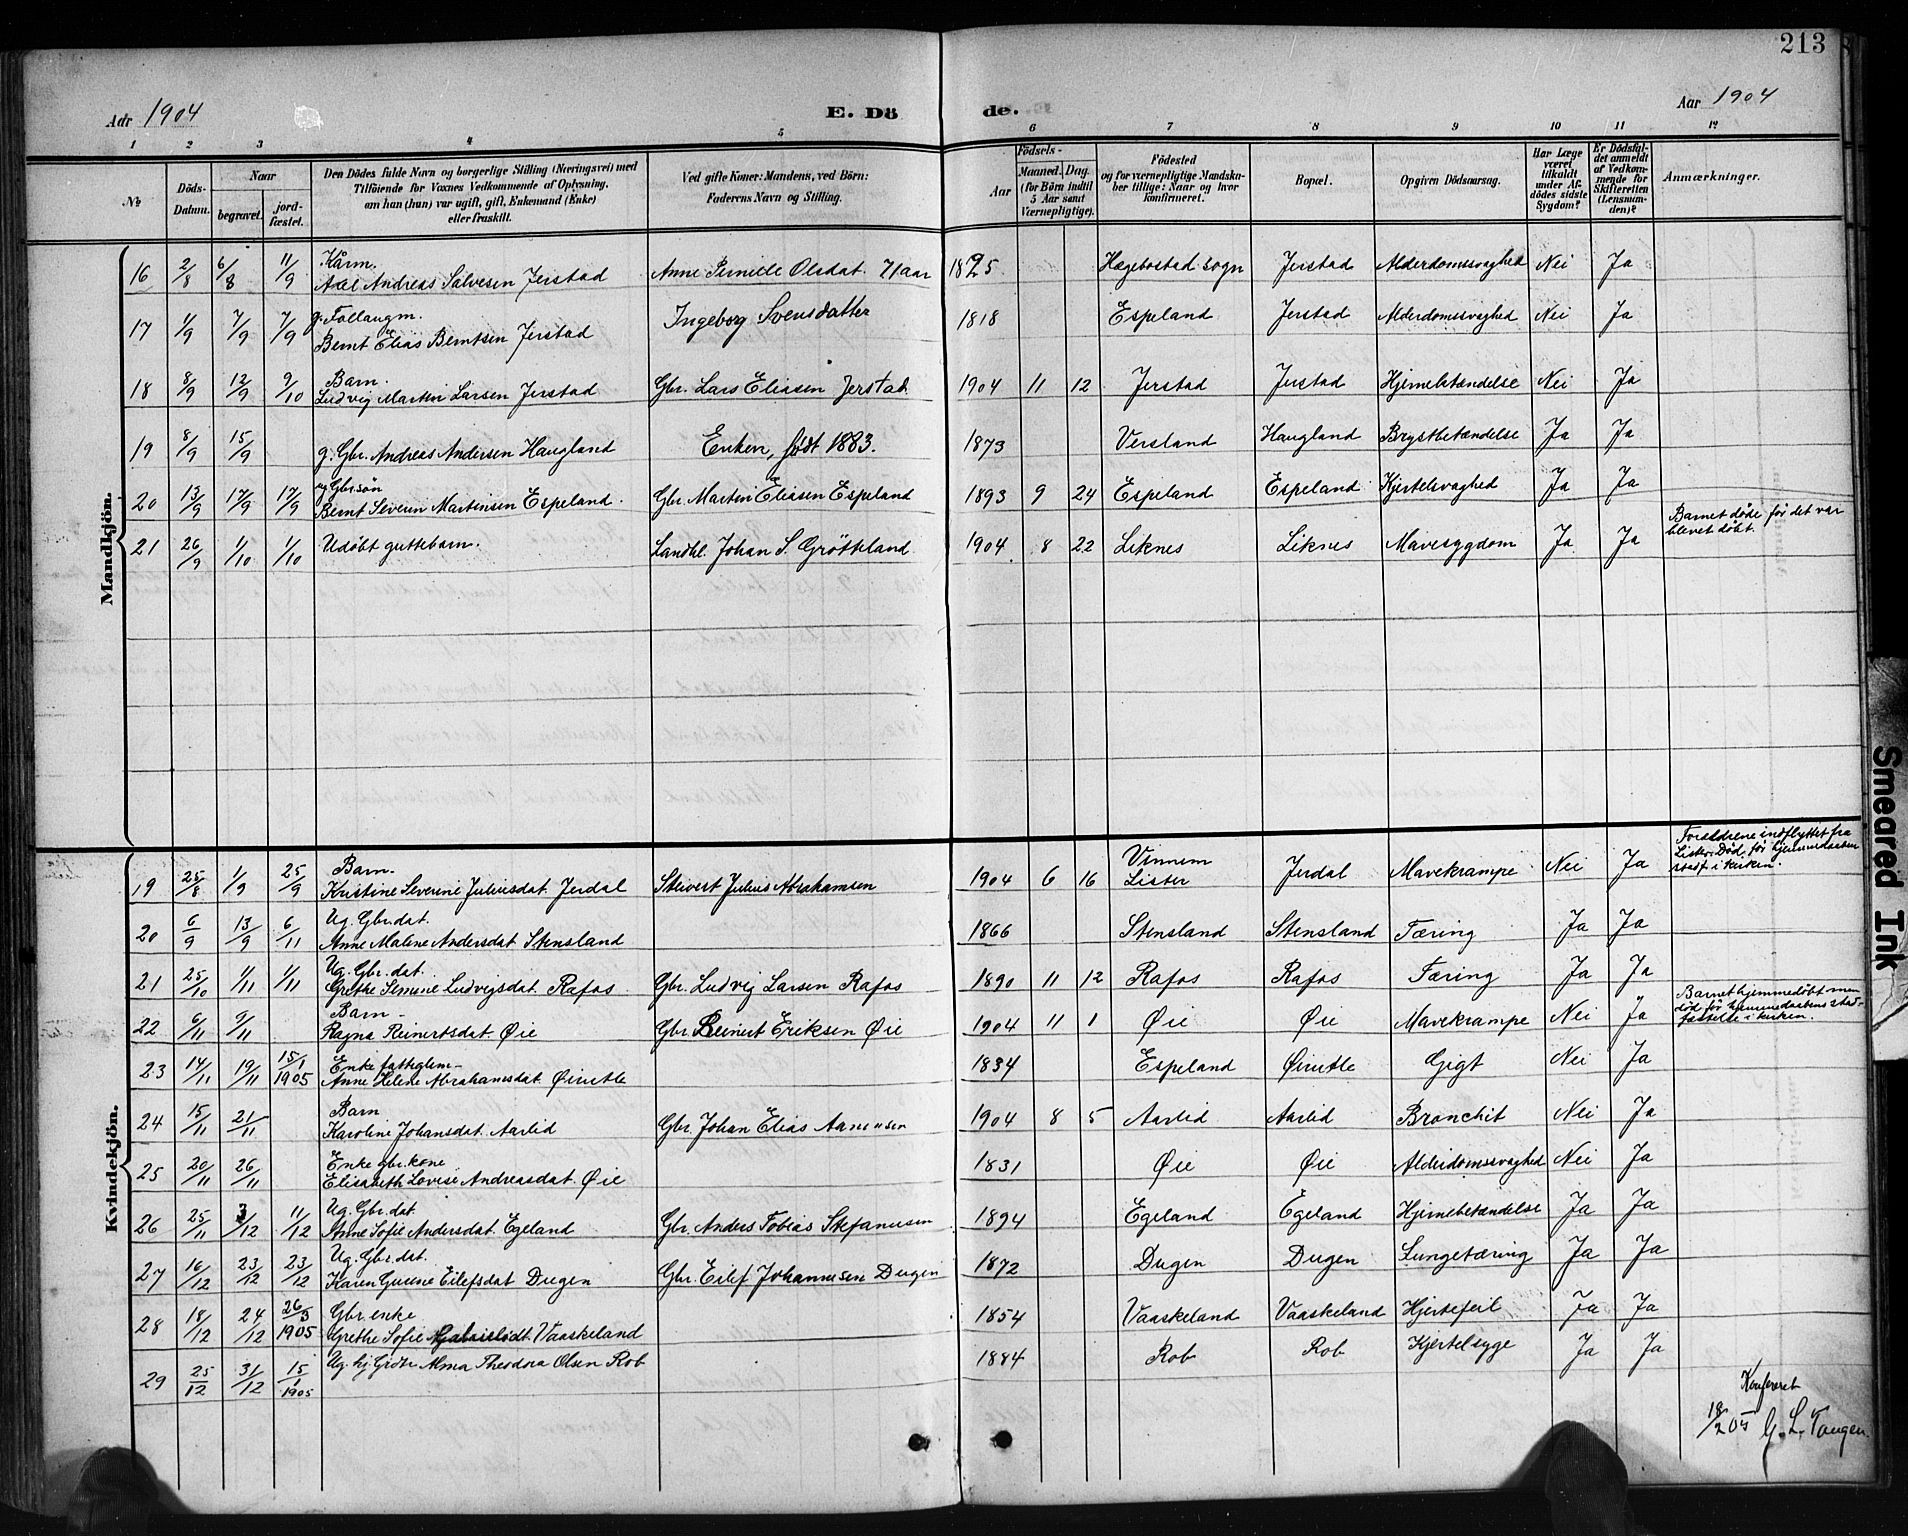 213
Aar 1904 E. Dö de. Aar 1904
1 2 3 4 5 6 7 8 9 10 11 12
№
Döds-Datum.
Naar
begravet. jord-fæstet.
Den Dödes fulde Navn og borgerlige Stilling (Næringsvei) med
Tilföiende for Voxnes Vedkommende af Oplysning,
om han (hun) var ugift, gift, Enkemand (Enke)
eller fraskilt.
Ved gifte Koner: Mandens, ved Börn:
Faderens Navn og Stilling.
Födsels-
Aar
Maaned. Dag.
(for Börn indtil
5 Aar samt
Værnepligtige).
Födested
og for værnepligtige Mandska-
ber tillige: Naar og hvor
konfirmeret.
Bopæl.
Opgiven Dödsaarsag.
Har Læge
været
tilkaldt
under Af-
dödes sidste
Sygdom?
Er Dödsfal-
det anmeldt
af Vedkom-
mende for
Skifteretten
(Lensman-
den)?
Anmærkninger.
Mandkjön.
16 2/8 6/8 11/9 Kårm. Axel Andreas Salvesen Jerstad Anne Pernille Olsdat. 71 aar 1825 Hægebostad sogn Jerstad Alderdomssvaghed Nei Ja
17 1/9 7/9 7/9 g. Follaugm. Bernt Elias Berntsen Jerstad Ingeborg Svensdatter 1818 Espeland Jerstad Alderdomssvaghed Nei Ja
18 8/9 12/9 9/10 Barn. Ludvig Martin Larsen Jerstad Gbr. Lars Eliasen Jerstad 1904 11 12 Jerstad Jerstad Hjernebetændelse Nei Ja
19 8/9 15/9 g. Gbr. Andreas Andersen Haugland Enken, født 1883. 1873 Versland Haugland Brystbetændelse Ja Ja
20 13/9 17/9 17/9 ug Gbr.søn Bernt Severin Martinsen Espeland. Gbr. Martin Eliasen Espeland 1893 9 24 Espeland Espeland Kjertelsvaghed Ja Ja
21 26/9 1/10 1/10 Udøbt guttebarn. Landhl. Johan S. Grötteland 1904 8 22 Liknes Liknes Mavesygdom Ja Ja Barnet døde før det var
blevet døbt.
Kvindekjön.
19 25/8 1/9 25/9 Barn. Kristine Severine Juliusdat. Jerdal Steivert Julius Abrahamsen 1904 6 16 Vinnem Lister Jerdal Mavekrampe Nei Ja Forældrene indflyttet fra
Lister. Død før hjemmedaaben
stadf. i kirken.
20 6/9 13/9 6/11 Ug. Gbr.dat. Anne Maline Andersdat Stensland 1866 Stensland Stensland Tæring Ja Ja
21 25/10 1/11 1/11 Ug. Gbr.dat. Grethe Simine Ludvigsdat. Rafos. Gbr. Ludvig Larsen Rafos 1890 11 12 Rafos Rafos Tæring Ja Ja
22 6/11 9/11 Barn Ragna Reinertsdat. Øie Gbr. Reinert Eriksen Øie 1904 11 1 Øie Øie Mavekrampe Nei Ja Barnet hjemmedøbt men
død før hjemmedaabens stad-
fæstelse i kirken.
23 14/11 19/11 15/1 1905 Enke fattiglem- Anne Helene Abrahamsdat. 1834 Espeland Gigt Nei Ja
24 15/11 21/11 Barn Karoline Johansdat. Aarlid Gbr. Johan Elias 1904 8 5 Aarlid Aarlid Bronchit Nei Ja
25 20/11 26/11 Enke gbr.kone Elisabeth Lovise Andreasdat. Øie 1831 Øie Øie Alderdomssvaghed Nei Ja
26 25/11 3/12 11/12 Ug. Gbr.dat. Anne Sofie Andersdat. Egeland Gbr. Anders Tobias Stefanusen 1894 Egeland Egeland Hjernebetændelse Ja Ja
27 16/12 23/12 23/12 Ug. Gbr.dat. Karen Gurine Eilefsdat Dugen Gbr. Eilef Johannesen Dugen 1872 Dugen Dugen Lungetæring Ja Ja
28 18/12 24/12 26/3 1905 Gbr. enke Grethe Sofie Vaaskeland 1854 Vaaskeland Vaaskeland Hjertefeil Ja Ja
29 25/12 31/12 15/1 1905 Ug. Alma Theodora Olsen Rob 1884 Rob Rob Kjertelsyge Ja Ja
Konfereret
18/2 05 G. L. Tangen.
Smeared Ink